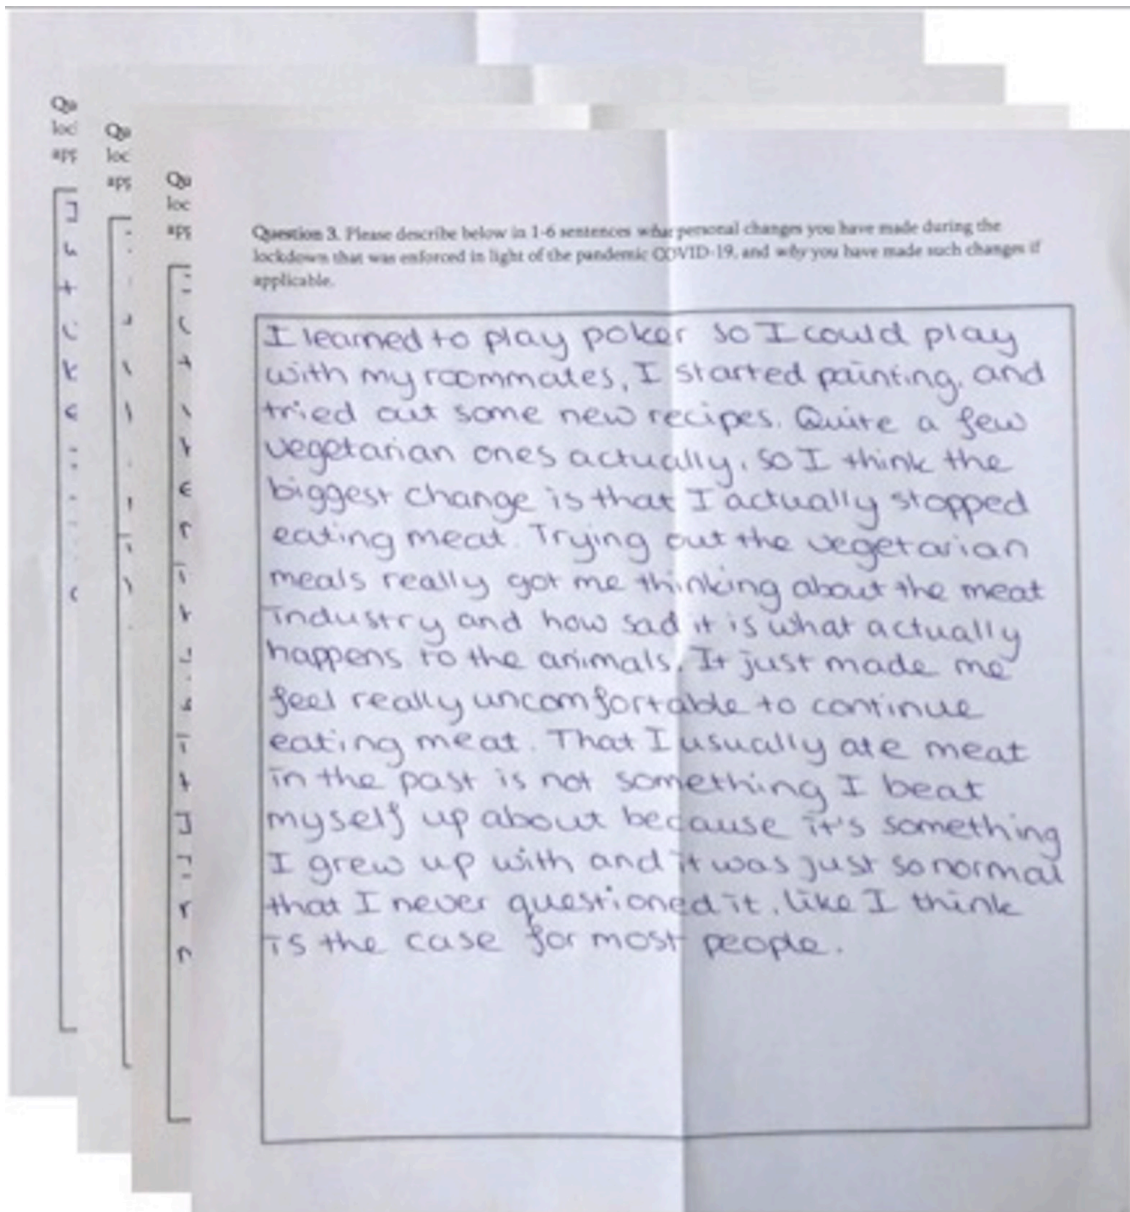 Qu
loc
app
Qu
loc
app
Qu
loc
app
Question 3. Please describe below in 1-6 sentences what personal changes you have made during the
lockdown that was enforced in light of the pandemic COVID-19, and why you have made such changes if
applicable.
I learned to play poker so I could play
with my roommates, I started painting, and
tried out some new recipes. Quite a few
vegetarian ones actually, so I think the
biggest change is that I actually stopped
eating meat. Trying out the vegetarian
meals really got me thinking about the meat
industry and how sad it is what actually
happens to the animals. It just made me
feel really uncomfortable to continue
eating meat. That I usually ate meat
in the past is not something I beat
myself up about because it's something
I grew up with and it was just so normal
that I never questioned it, like I think
is the case for most people.